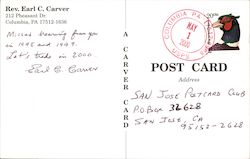 Rev. Earl C. Carver
212 Pheasant Dr.
Columbia, PA 17512-1636
Missed hearing from you
in 1998 and 1999.
Let's trade in 2000
Earl C. Carver
A CARVER CARD
COLUMBIA PA
2000
POST CARD
Address
SAN JOSE POSTCARD CLUB
P.O BOX 32628
SAN JOSE, CA
95152-2628